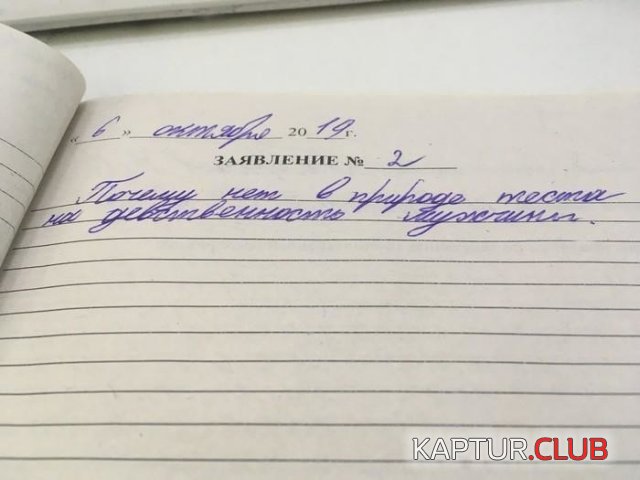 « 6 » октября 20 19 г.
ЗАЯВЛЕНИЕ № 2
Почему нет в природе теста
на девственность мужчины.
KAPTUR.CLUB